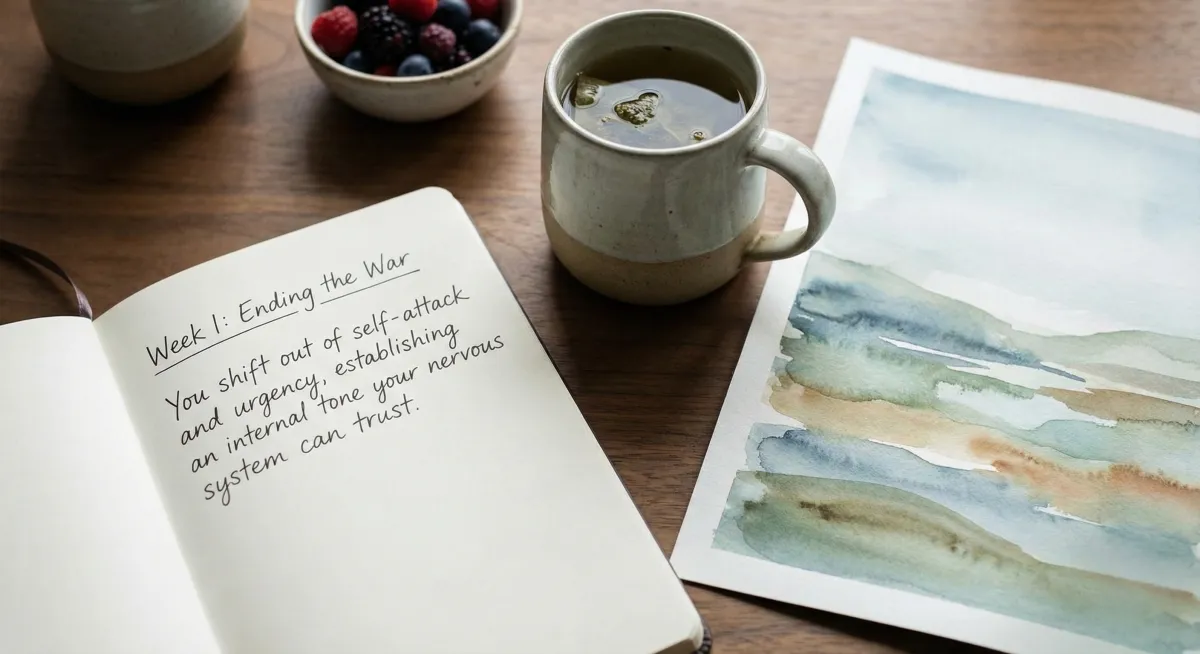 Week 1: Ending the War
You shift out of self-attack
and urgency, establishing
an internal tone your nervous
system can trust.